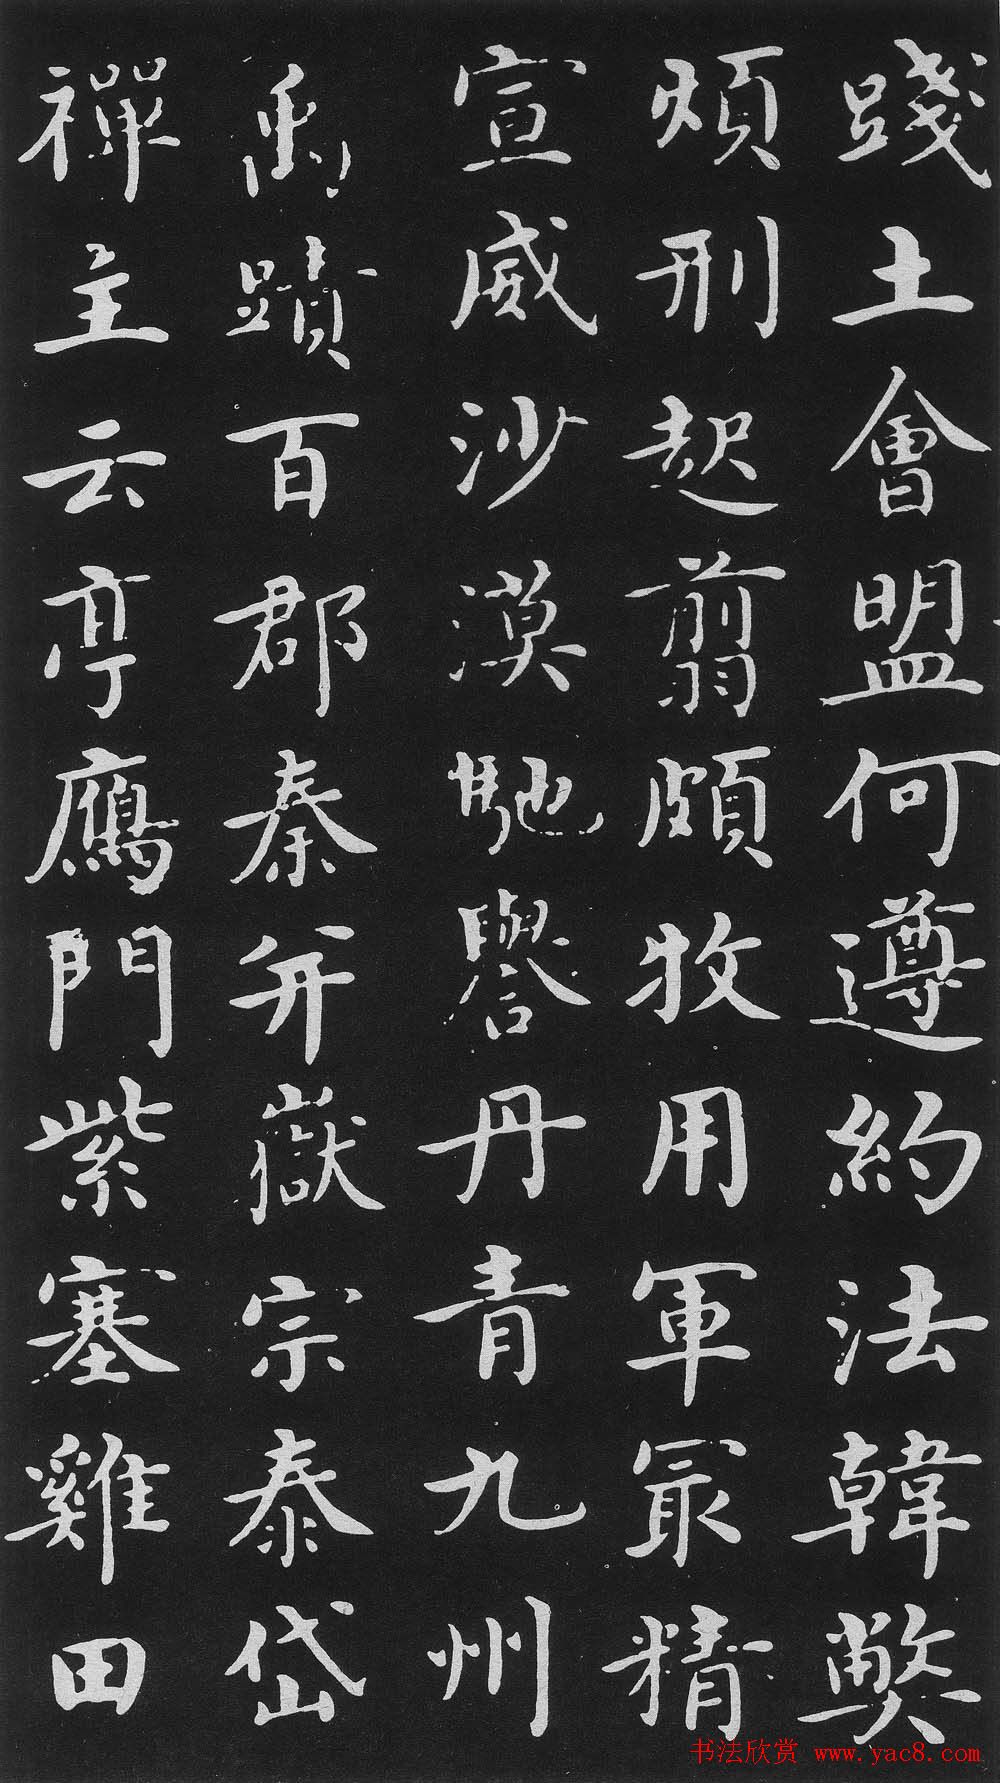 踐土會盟何遵約法韓弊
煩刑起翦頗牧用軍冣精
宣威沙漠馳譽丹青九州
禹蹟百郡秦并嶽宗泰岱
禪主云亭鴈門紫塞雞田
书法欣赏 www.yac8.com